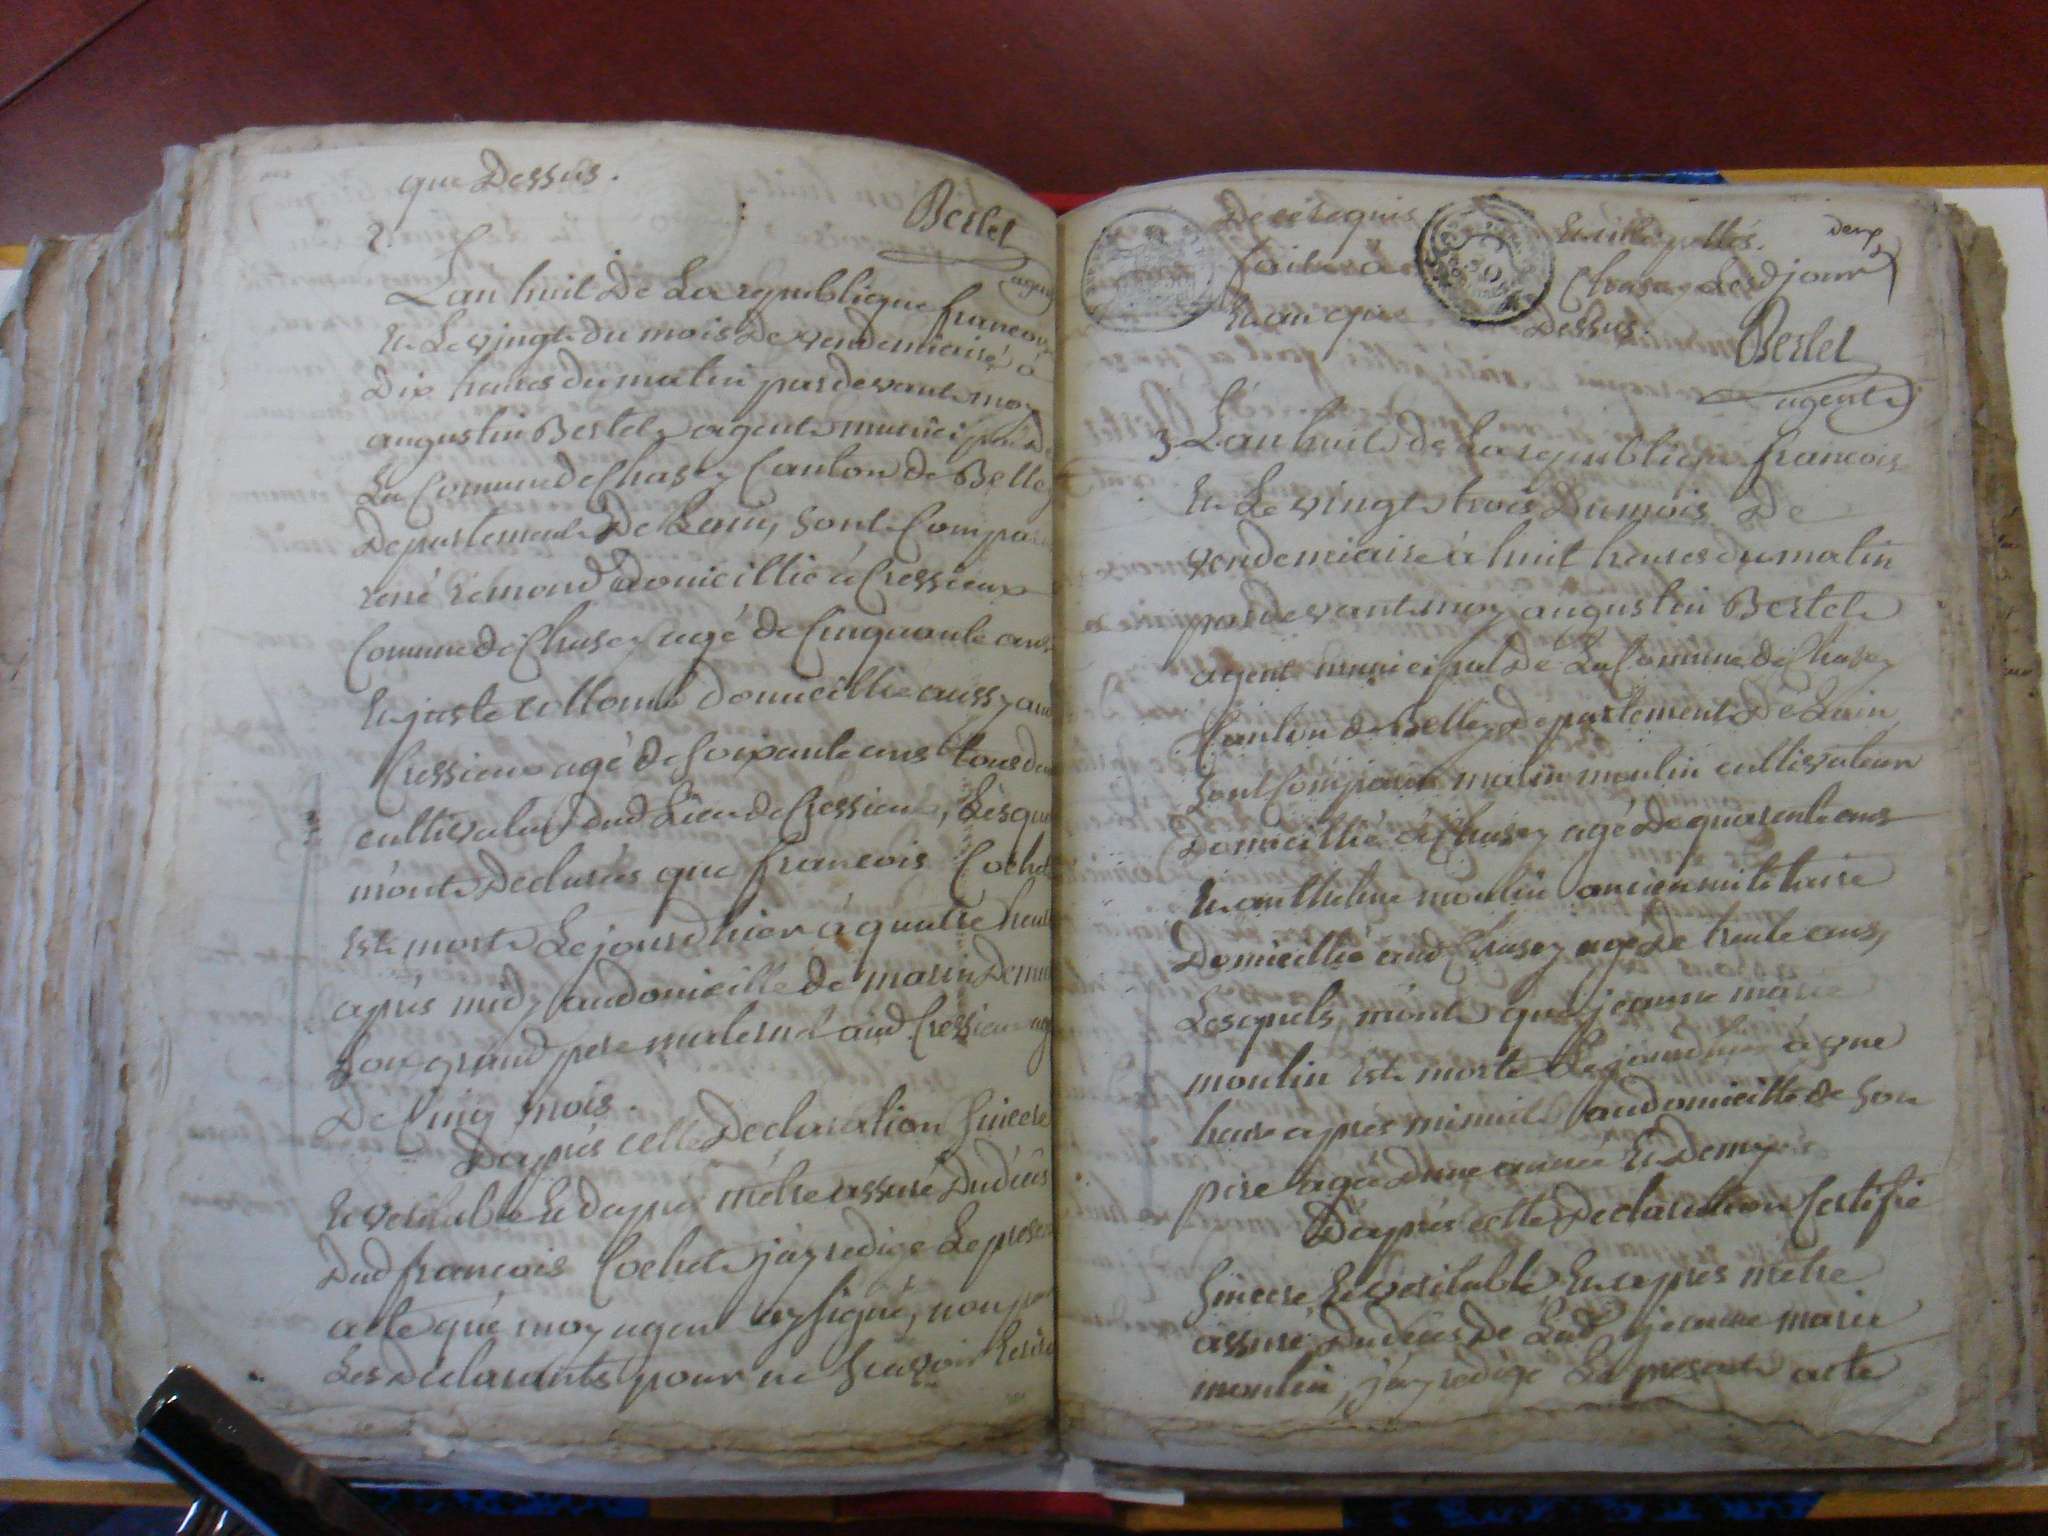 que Dessus.
Bertet
agent
2.
Lan huit De La republique francoise
Et Le vingt du mois De vendemiaire à
Dix heures du matin pardevant moy
augustin Bertet agent municipal De
La Comune De Chasey Canton de Belley
Departement De Lain, sont Comparu
rené remond domicillié à Cressieux
Comune De Chasey agé de Cinquante ans
Et juste domicillié aussy aud
Cressieux agé de soixante ans tous deux
cultivateurs dud Lieu de Cressieux, Lesquels
m'ont Declarés que francois Cochet
Est mort Le jourdhier à quatre heures
après midy audomicille de marin
son grand pere maternel aud Cressieux agé
De Cinq mois.
Dapres cette Declaration sincere
Et veritable Et dapres mêtre assuré Du déces
Dud francois Cochet j'ay redigé Le present
acte que moy agent ay signé, non pas
Les Declarants pour ne scavoir Ecrire
De ce requis Et interpellés.
deux
fait à Chasey Lesd jour
Et an que Dessus.
Bertet
agent
3. Lan huit de La republique francoise
Et Le vingt trois Du mois De
vendemiaire à huit heures du matin
pardevant moy augustin Bertet
agent municipal De La Comune de Chasey
Canton de Belley departement De Lain
sont Comparu moulin cultivateur
Domicillié à Chasey agé De quarente ans
Et anthelme moulin ancien militaire
Domicillié aud Chasey agé De trente ans,
Lesquels m'ont que jeanne marie
moulin Est morte Le jourdhier à une
heure après minuit audomicille de son
pere agée Dune année Et Demy
D'après cette Declaration Certifié
sincere Et veritable Et apres mêtre
assuré Du déces De Lad jeanne marie
moulin, j'ay redigé Le present acte